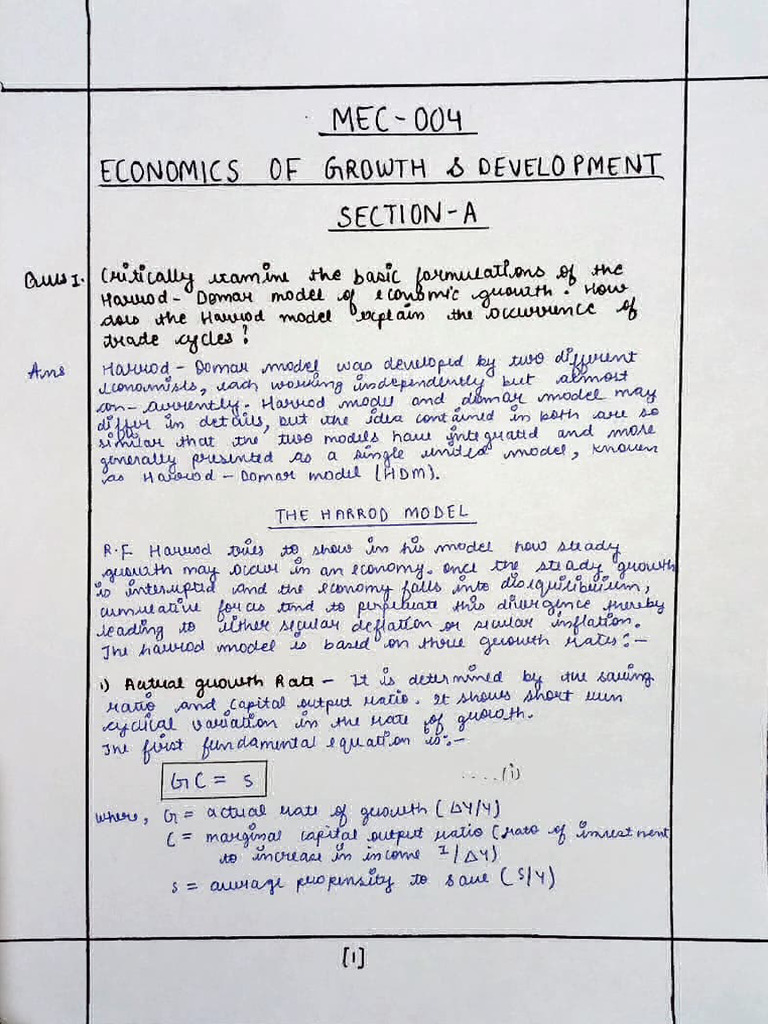 MEC-004
ECONOMICS OF GROWTH & DEVELOPMENT
SECTION-A
Ques 1. Critically examine the basic formulations of the
Harrod - Domar model of economic growth. How
does the Harrod model explain the occurrence of
trade cycles?
Ans Harrod - Domar model was developed by two different
economists, each working independently but almost
con-currently. Harrod model and domar model may
differ in details, but the idea contained in both are so
similar that the two models have integrated and more
generally presented as a single united model, known
as Harrod - Domar model (HDM).
THE HARROD MODEL
R.F Harrod tries to show in his model how steady
growth may occur in an economy. once the steady growth
is interrupted and the economy falls into disequilibrium,
cumulative forces tend to perpetuate this divergence thereby
leading to either secular deflation or secular inflation.
The harrod model is based on three growth rates:-
i) Actual growth Rate - It is determined by the saving
ratio and capital output ratio. It shows short run
cyclical variation in the rate of growth.
The first fundamental equation is:-
GC = s ....(i)
where, G = actual rate of growth (ΔY/Y)
C = marginal capital output ratio (rate of investment
to increase in income I/ΔY)
s = average propensity to save (S/Y)
[1]